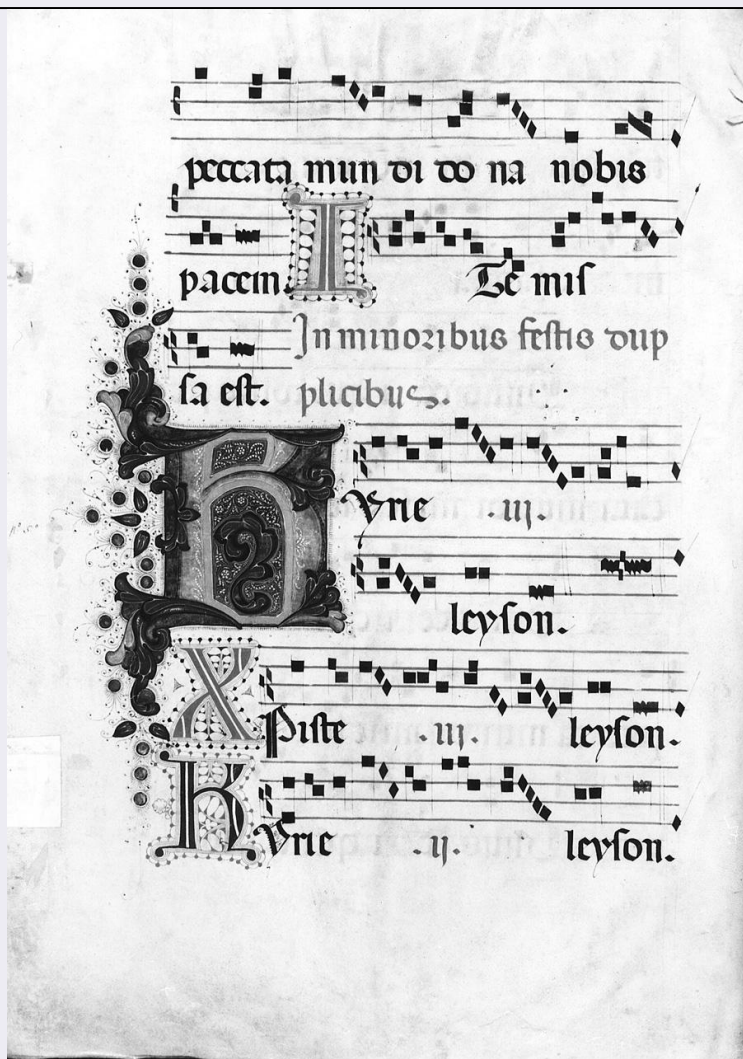 peccata mun di do na nobis
pacem. I Te miſ
ſa est. In minoribus festis dup
plicibus.
K yrie .iij.
leyſon.
X Piste .iij. leyſon.
K yrie .ij. leyſon.